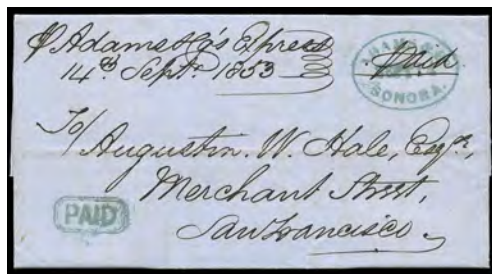 ℘ Adams & Co's Express
14th Septr. 1853
ADAMS & Co
Paid
SONORA.
To/ Augustin. W. Hale, Esqre,
Merchant Street,
San Francisco.
PAID